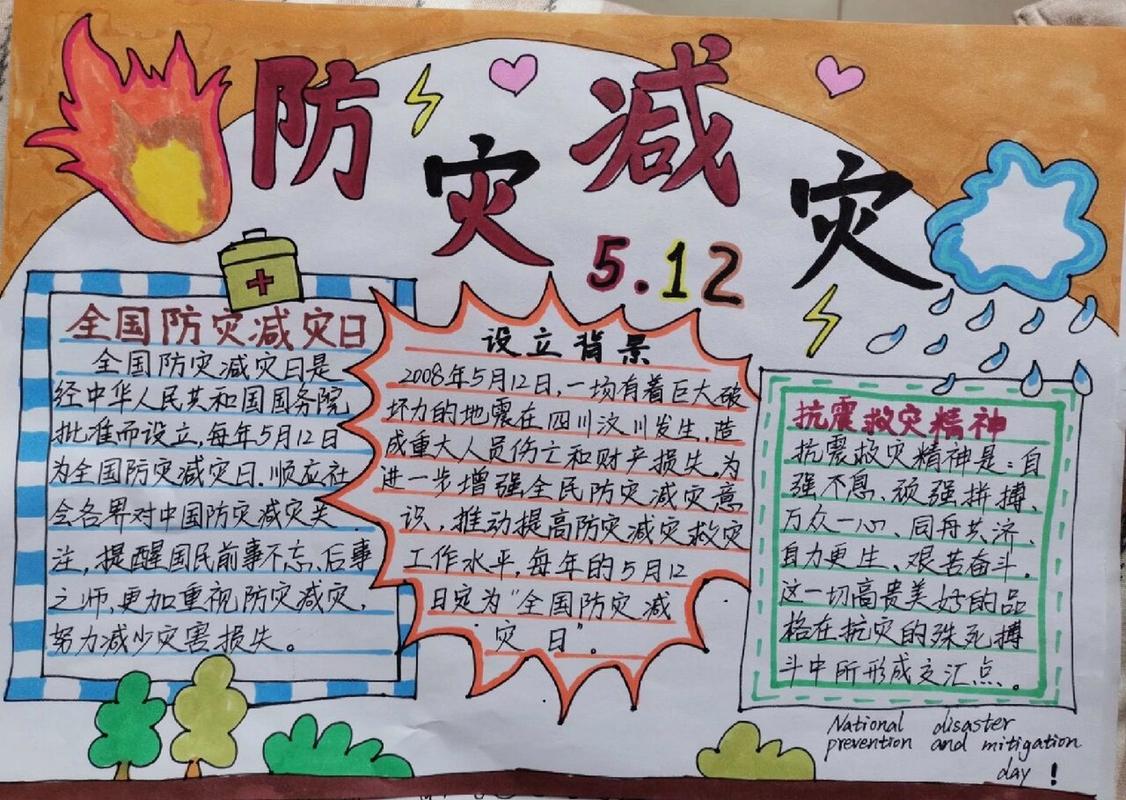 防灾减灾
5.12
全国防灾减灾日
全国防灾减灾日是
经中华人民共和国国务院
批准而设立,每年5月12日
为全国防灾减灾日.顺应社
会各界对中国防灾减灾关
注,提醒国民前事不忘、后事
之师,更加重视防灾减灾,
努力减少灾害损失。
设立背景
2008年5月12日,一场有着巨大破
坏力的地震在四川汶川发生,造
成重大人员伤亡和财产损失,为
进一步增强全民防灾减灾意
识,推动提高防灾减灾救灾
工作水平,每年的5月12
日定为“全国防灾减
灾日”。
抗震救灾精神
抗震救灾精神是:自
强不息、顽强拼搏、
万众一心、同舟共济、
自力更生、艰苦奋斗,
这一切高贵美好的品
格在抗灾的殊死搏
斗中所形成交汇点。
National disaster
prevention and mitigation
day !